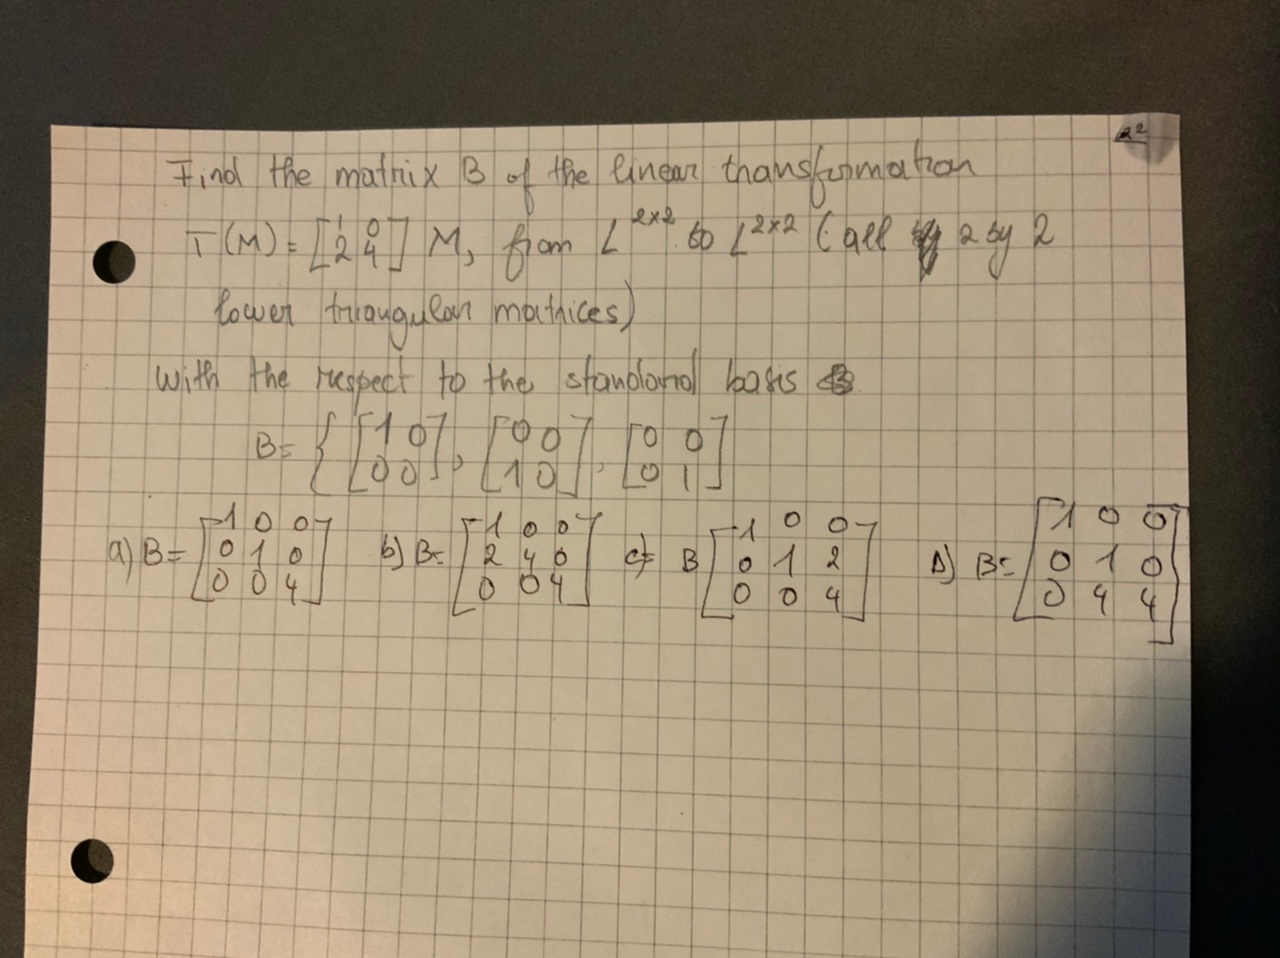 2²
Find the matrix B of the linear transformation
T(M) = [1 0 2 4] M, from L^2×2 to L^2×2 (all 2 by 2
lower triangular matrices)
With the respect to the standard basis
B= { [1 0 0 0], [0 0 1 0], [0 0 0 1]
a) B= [1 0 0 0 1 0 0 0 4] b) B= [1 0 0 2 4 0 0 0 4] c) B [1 0 0 0 1 2 0 0 4] D) B= [1 0 0 0 1 0 0 4 4]